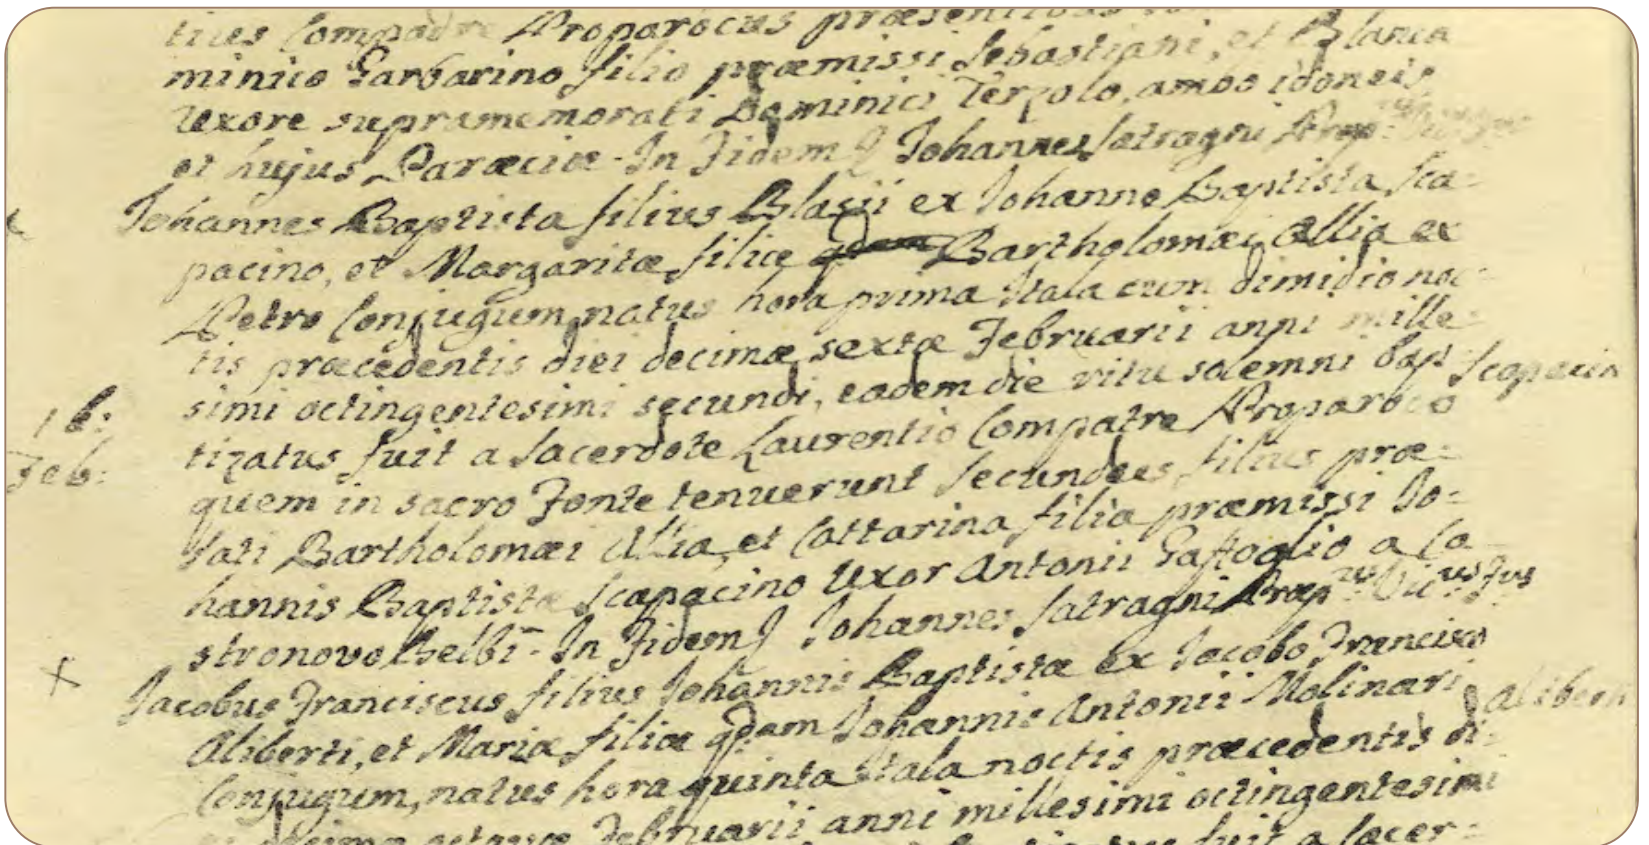 tius Compadre Proparocus præsentibus
minico Garbarino filio præmissi Sebastiani, et Blanca
Uxore supramemorati Dominici Terzolo, ambo idoneis
et hujus Paræciæ - In Fidem Johannes Satragni Præp
Johannes Baptista filius Blasii ex Johanne Baptista Sca=
pacino, et Margaritæ filiæ qdem Bartholomæi Allia ex
Petro Conjugum, natus hora prima Itala cum dimidio noc=
tis præcedentis diei decimæ sextæ Februarii anni mille=
simi octingentesimi secundi, eadem die ritu solemni bap
Scapacin
16:
Feb:
tizatus fuit a Sacerdote Laurentio Compatre Proparoco
quem in sacro Fonte tenuerunt Secundus filius præ=
fati Bartholomæi Allia, et Cattarina filia præmissi Jo=
hannis Baptistæ Scapacino Uxor Antonii Gaftoglio a Ca
stronovo Belbi - In Fidem Johannes Satragni Præp.us Vic.us Fus
x
Jacobus Franciscus filius Johannis Baptistæ ex Jacobo Francisco
Aliberti, et Mariæ filiæ qdem Johannis Antonii Molinari
Aliberti
Conjugum, natus hora quinta Itala noctis præcedentis di=
decimæ octavæ Februarii anni millesimi octingentesimi
fuit a Sacer=